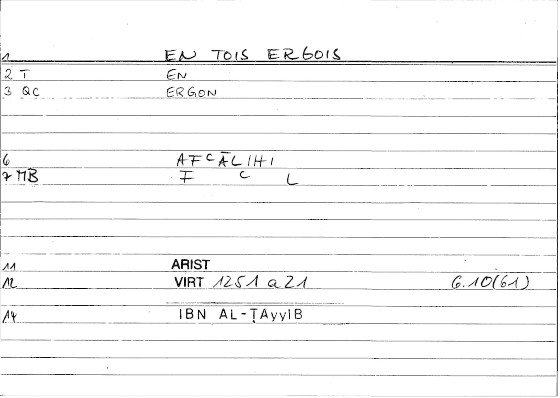 1 EN TOIS ERGOIS
2 T EN
3 QC ERGON
6 AFᶜĀLIHI
7 MB F ᶜ L
11 ARIST
12 VIRT 1251 a21 6.10(61)
14 IBN AL-ṬAyyIB